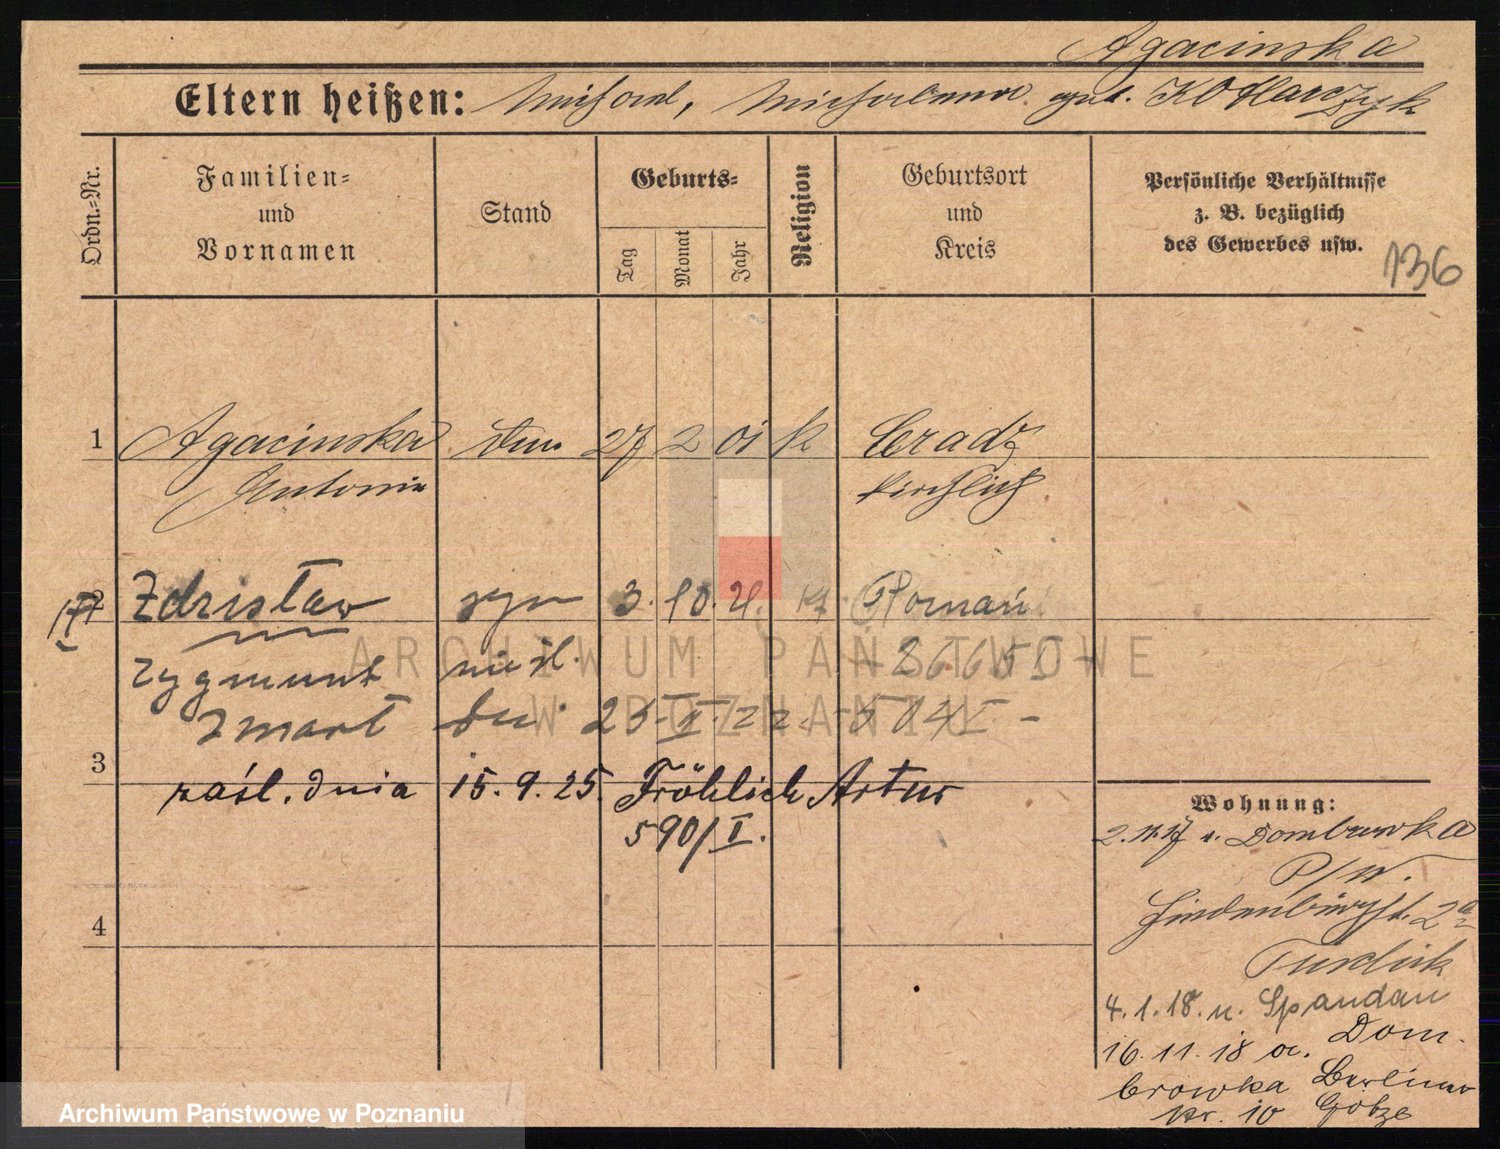 Agacinska
Eltern heißen: Michael, Michalina geb. Kotlarczyk
Ordn.=Nr.
Familien=
und
Vornamen
Stand
Geburts=
Tag
Monat
Jahr
Religion
Geburtsort
und
Kreis
Persönliche Verhältnisse
z. B. bezüglich
des Gewerbes usw.
136
1 Agacinska 27 2 01 k Gradz
Antonia kirchlich
2 Zdzisław syn 3. 10. 21. Poznań
Zygmunt nieśl.
zmarł
3
zaśl. dnia 15. 9. 25. Fröhlich Artur
590/I.
4
Wohnung:
2.11.17 v. Dombrowka
P/W.
Hindenburgst. 2a
4.1.18. n. Spandau
16.11.18 a. Dom.
browka Berliner
Nr. 10 Götze
ARCHIWUM PAŃSTWOWE
W POZNANIU
Archiwum Państwowe w Poznaniu